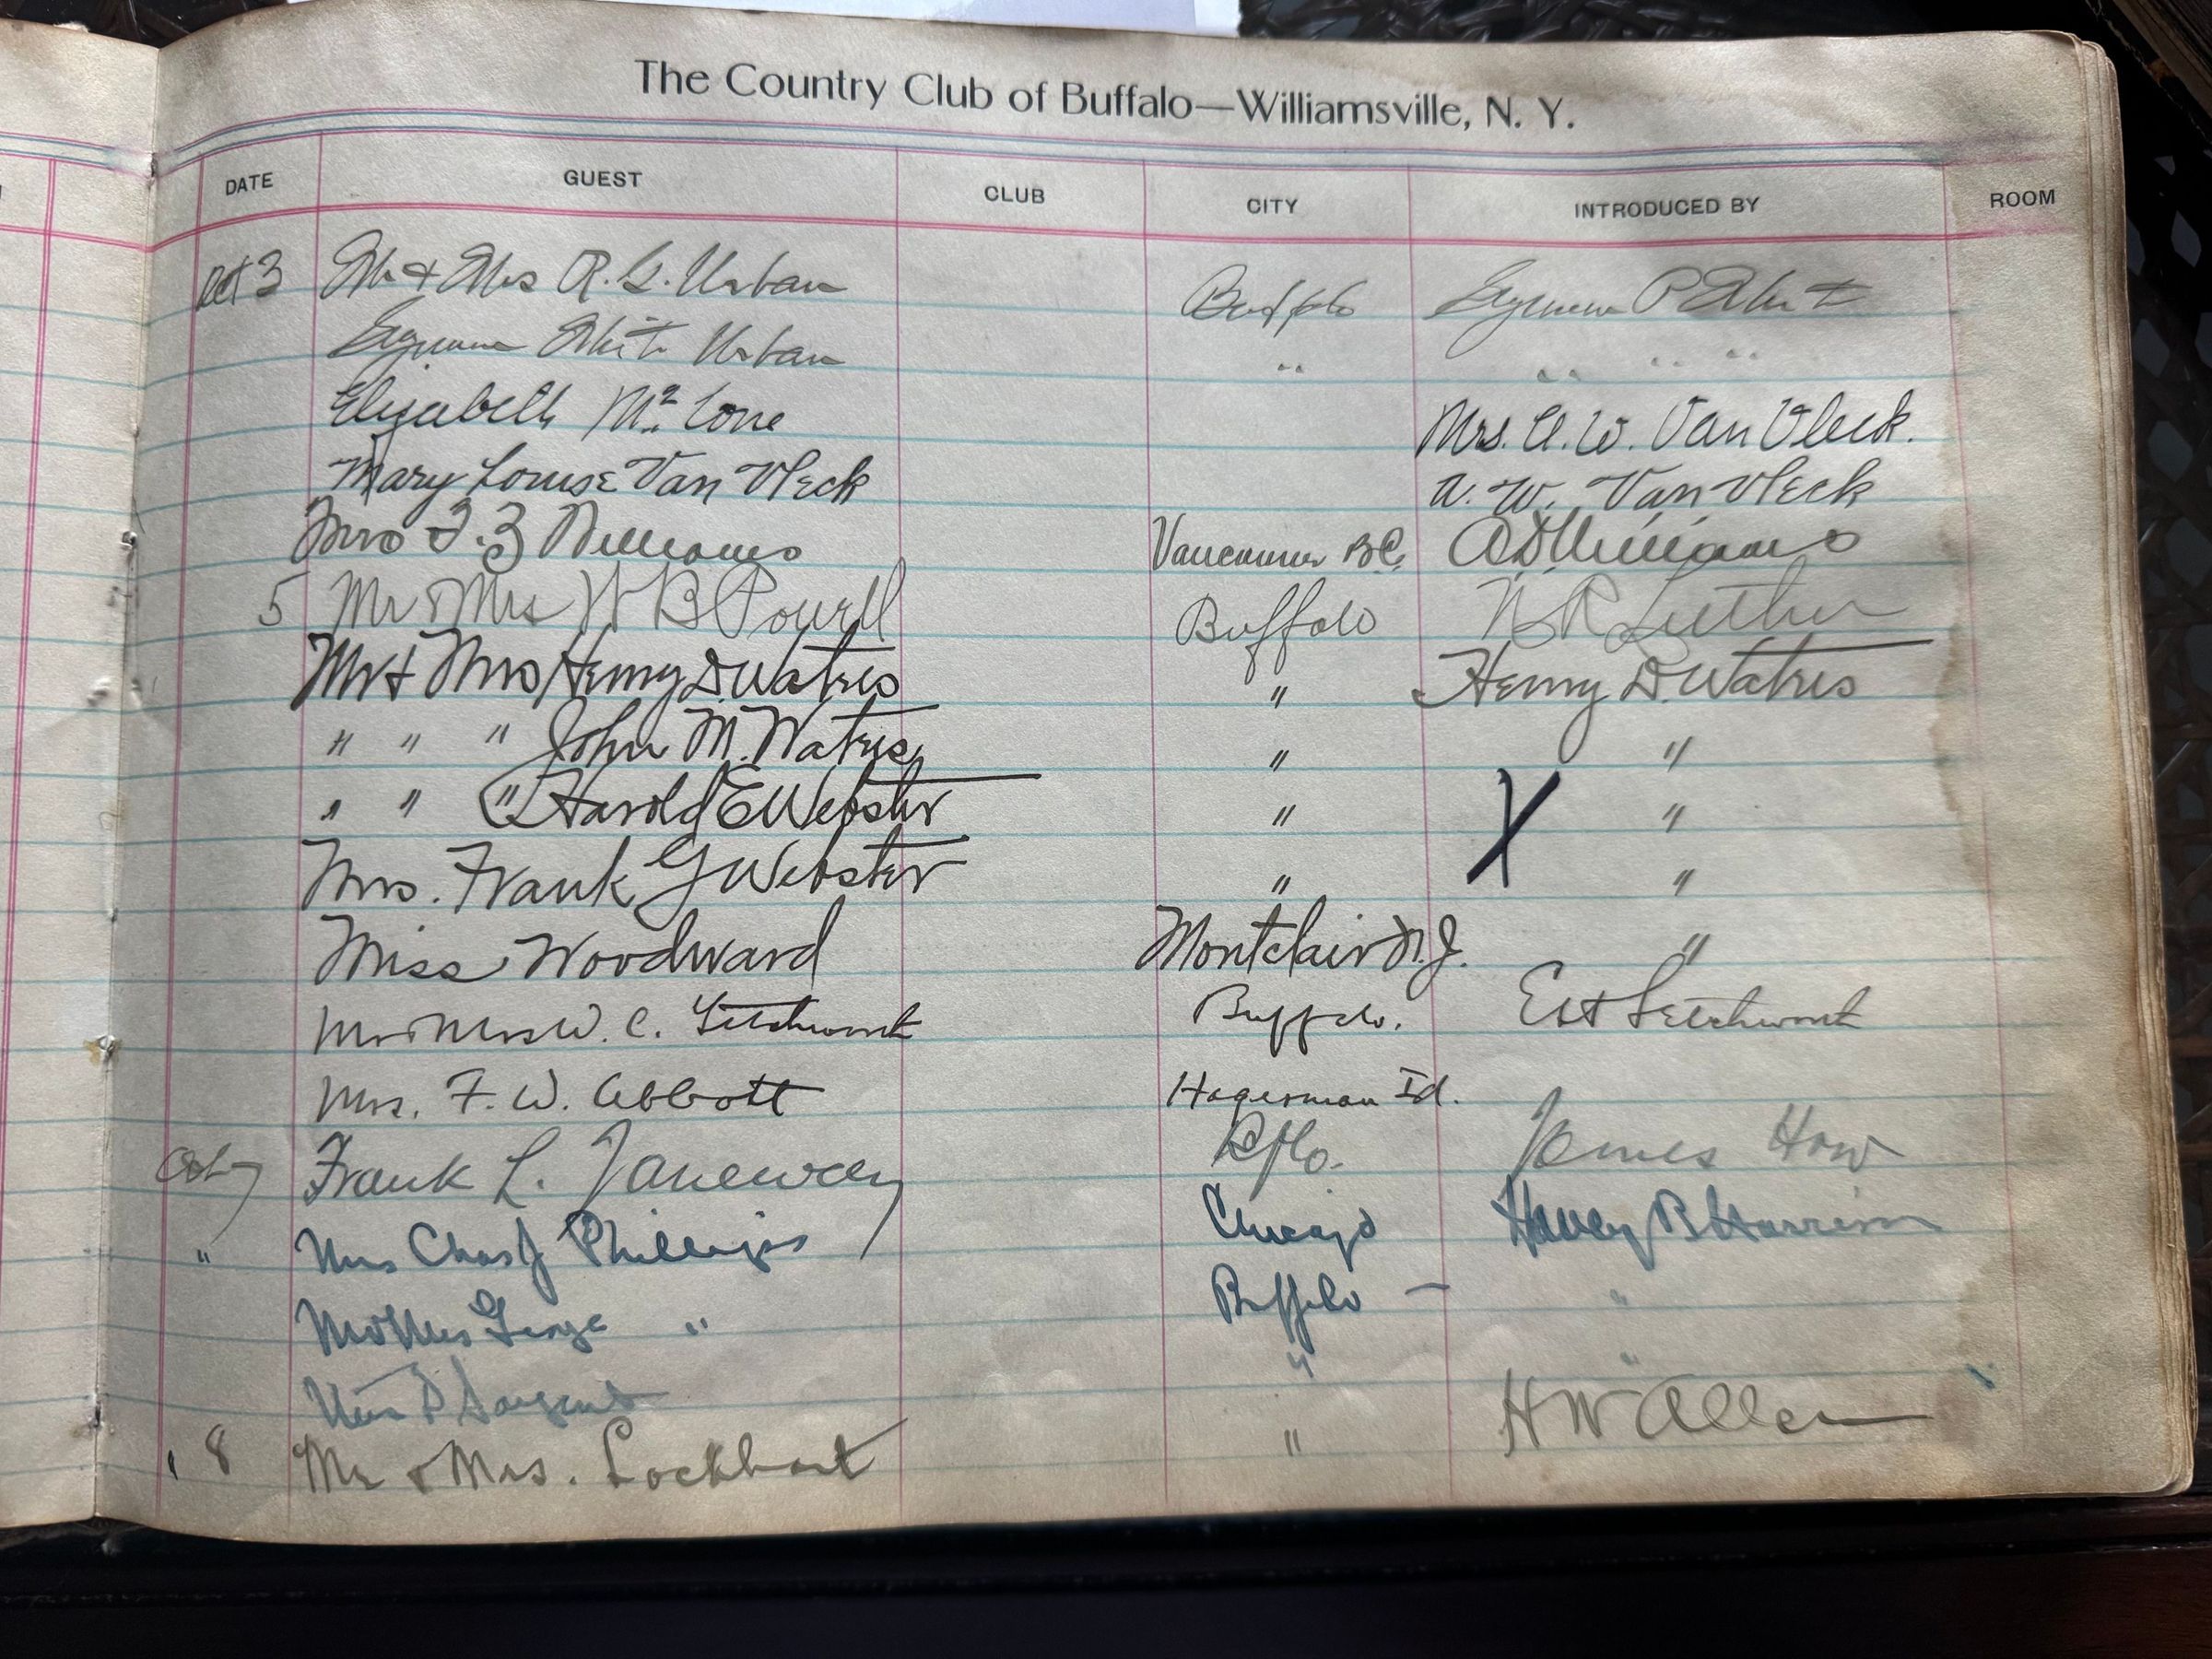 The Country Club of Buffalo—Williamsville, N. Y.
DATE GUEST CLUB CITY INTRODUCED BY ROOM
Oct 3 Mr & Mrs R. G. Urban Buffalo Seymour P White
Seymour White Urban " " " "
Elizabeth Mc Cone Mrs. A. W. Van Vleck.
Mary Louise Van Vleck A. W. Van Vleck
Mrs F. Z Williams Vancouver B.C. Williams
5 Mr & Mrs W B Powell Buffalo Luther
Mr & Mrs Henry D. Watres " Henry D. Watres
" " " John M. Watres " "
" " " Harold E Webster " X "
Mrs. Frank G Webster " "
Miss Woodward Montclair N.J. "
Mr & Mrs W. C. Letchworth Buffalo. Letchworth
Mrs. F. W. Abbott Hagerman Id.
Oct 7 Frank L. Janeway Bflo. James How
" Mrs Chas J Phillips Chicago Harvey B Harrison
Mr & Mrs George " Buffalo — "
Sargent " "
" 8 Mr & Mrs. Lockhart " H W Allen